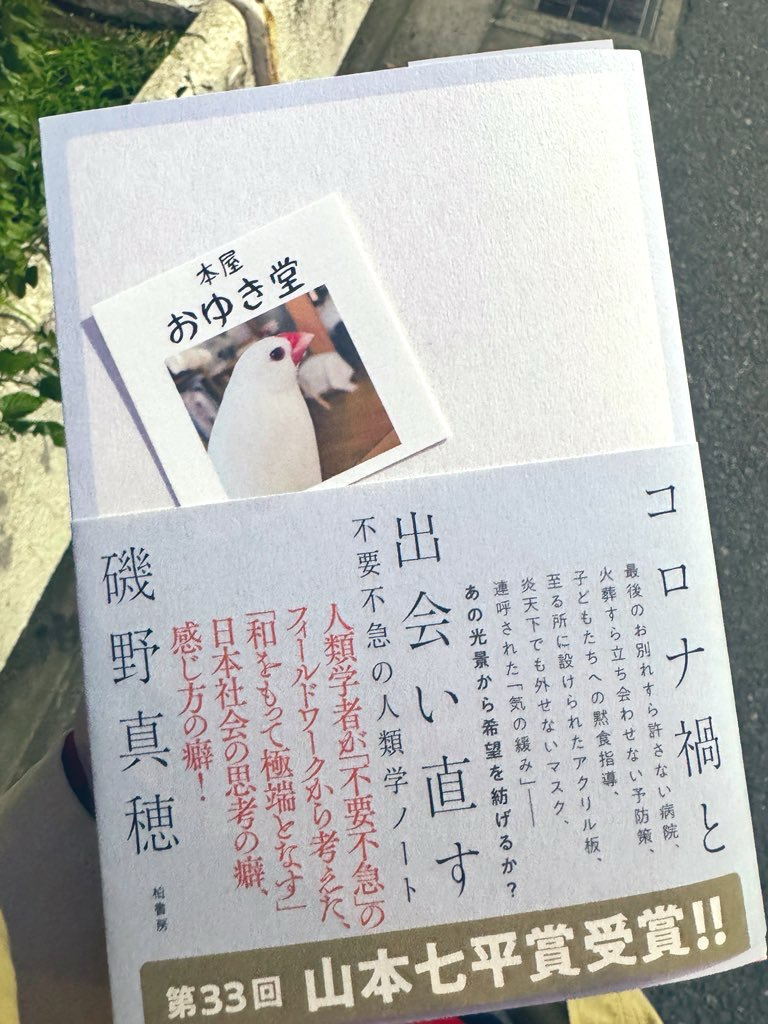 本屋
おゆき堂
コロナ禍と
最後のお別れすら許さない病院、
火葬すら立ち会わせない予防策、
子どもたちへの黙食指導、
至る所に設けられたアクリル板、
炎天下でも外せないマスク、
連呼された「気の緩み」――
あの光景から希望を紡げるか?
出会い直す
不要不急の人類学ノート
人類学者が「不要不急」の
フィールドワークから考えた、
「和をもって極端となす」
日本社会の思考の癖、
感じ方の癖!
磯野真穂
柏書房
第33回 山本七平賞受賞!!